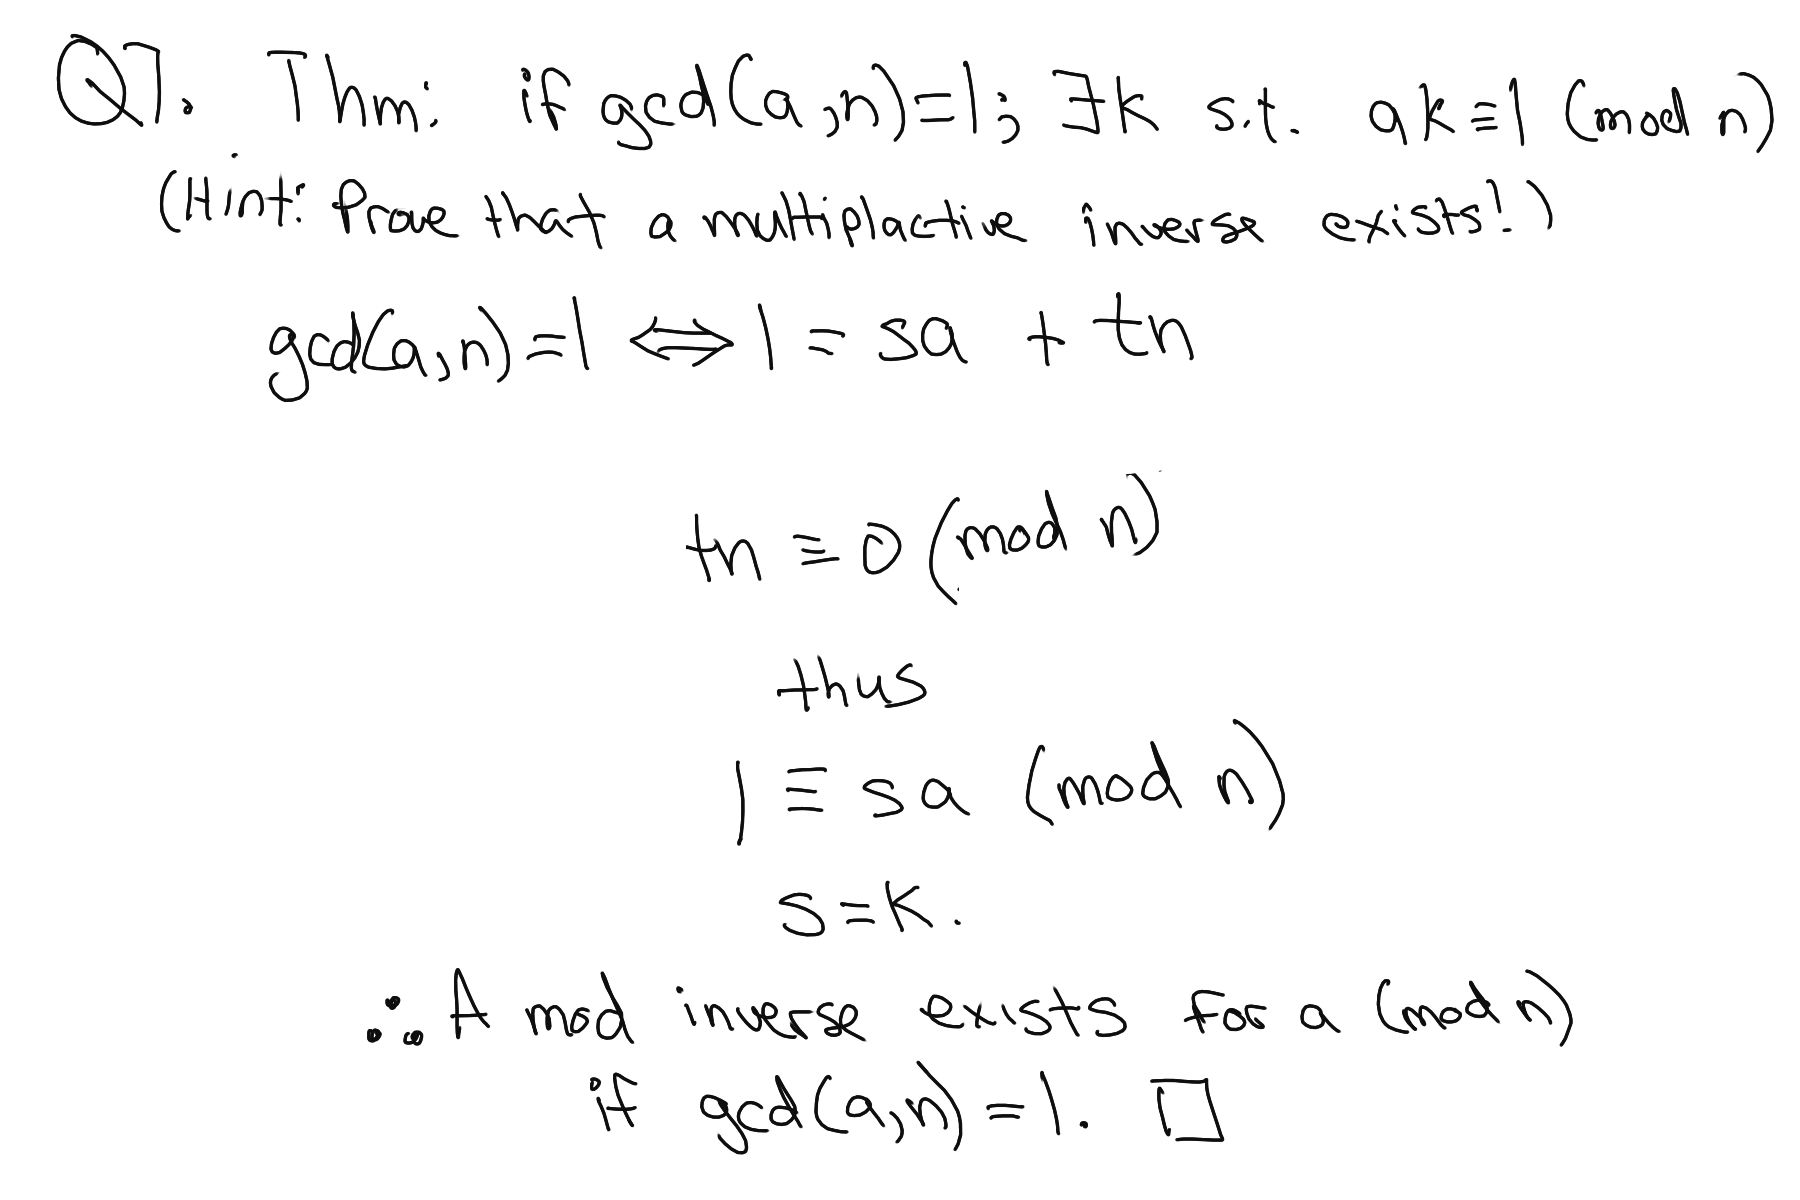 Q7. Thm: if gcd(a,n)=1; ∃k s.t. ak≡1 (mod n)
(Hint: Prove that a multiplactive inverse exists!)
gcd(a,n)=1 ⟺ 1 = sa + tn
tn ≡ 0 (mod n)
thus
1 ≡ sa (mod n)
s=k.
∴ A mod inverse exists for a (mod n)
if gcd(a,n)=1. □